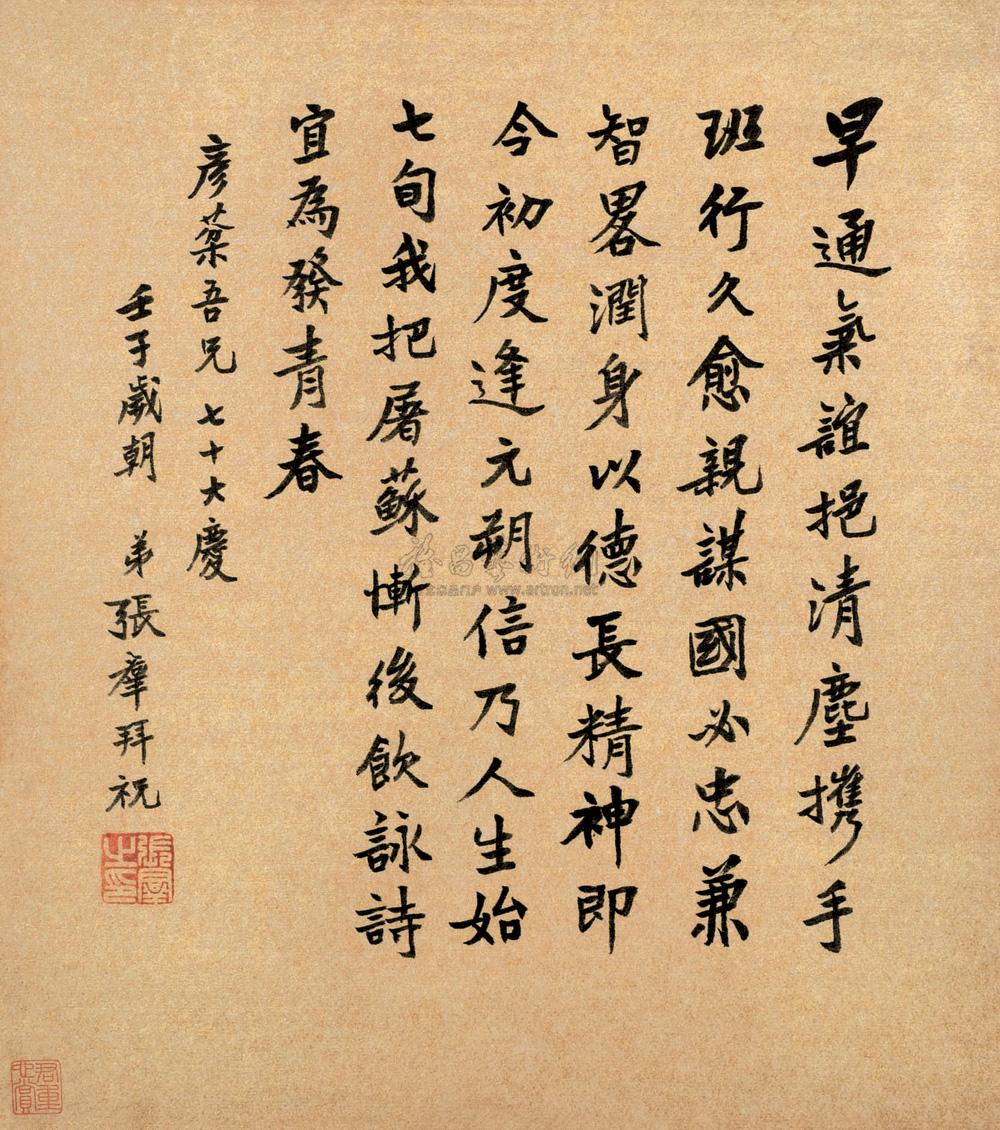 早通氣誼挹清塵攜手
班行久愈親謀國必忠兼
智畧潤身以德長精神即
今初度逢元朔信乃人生始
七旬我把屠蘇慚後飲詠詩
宜為發青春
彥棻吾兄七十大慶
壬子歲朝 弟張羣拜祝
張羣之印
www.artron.net